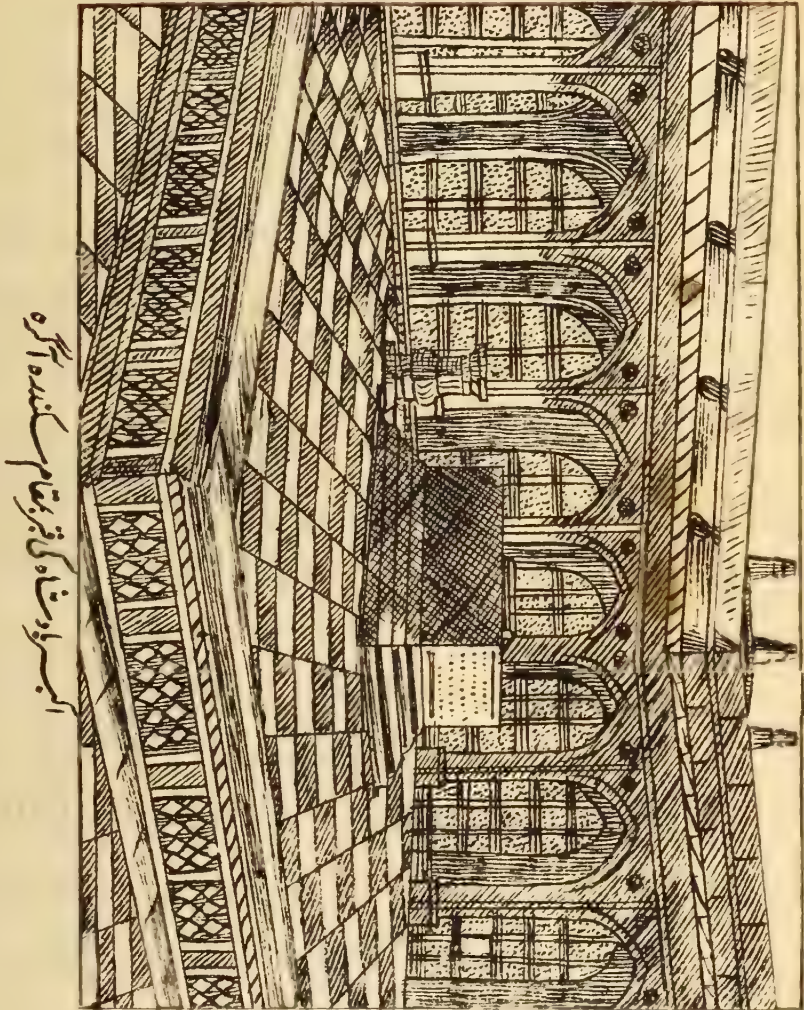 اکبر بادشاہ کی قبر بمقام سکندرہ آگرہ